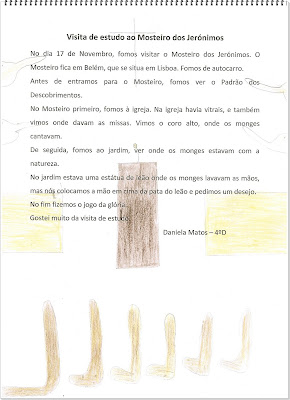 Visita de estudo ao Mosteiro dos Jerónimos
No dia 17 de Novembro, fomos visitar o Mosteiro dos Jerónimos. O
Mosteiro fica em Belém, que se situa em Lisboa. Fomos de autocarro.
Antes de entramos para o Mosteiro, fomos ver o Padrão dos
Descobrimentos.
No Mosteiro primeiro, fomos à igreja. Na igreja havia vitrais, e também
vimos onde davam as missas. Vimos o coro alto, onde os monges
cantavam.
De seguida, fomos ao jardim, ver onde os monges estavam com a
natureza.
No jardim estava uma estátua de leão onde os monges lavavam as mãos,
mas nós colocamos a mão em cima da pata do leão e pedimos um desejo.
No fim fizemos o jogo da glória.
Gostei muito da visita de estudo.
Daniela Matos – 4ºD